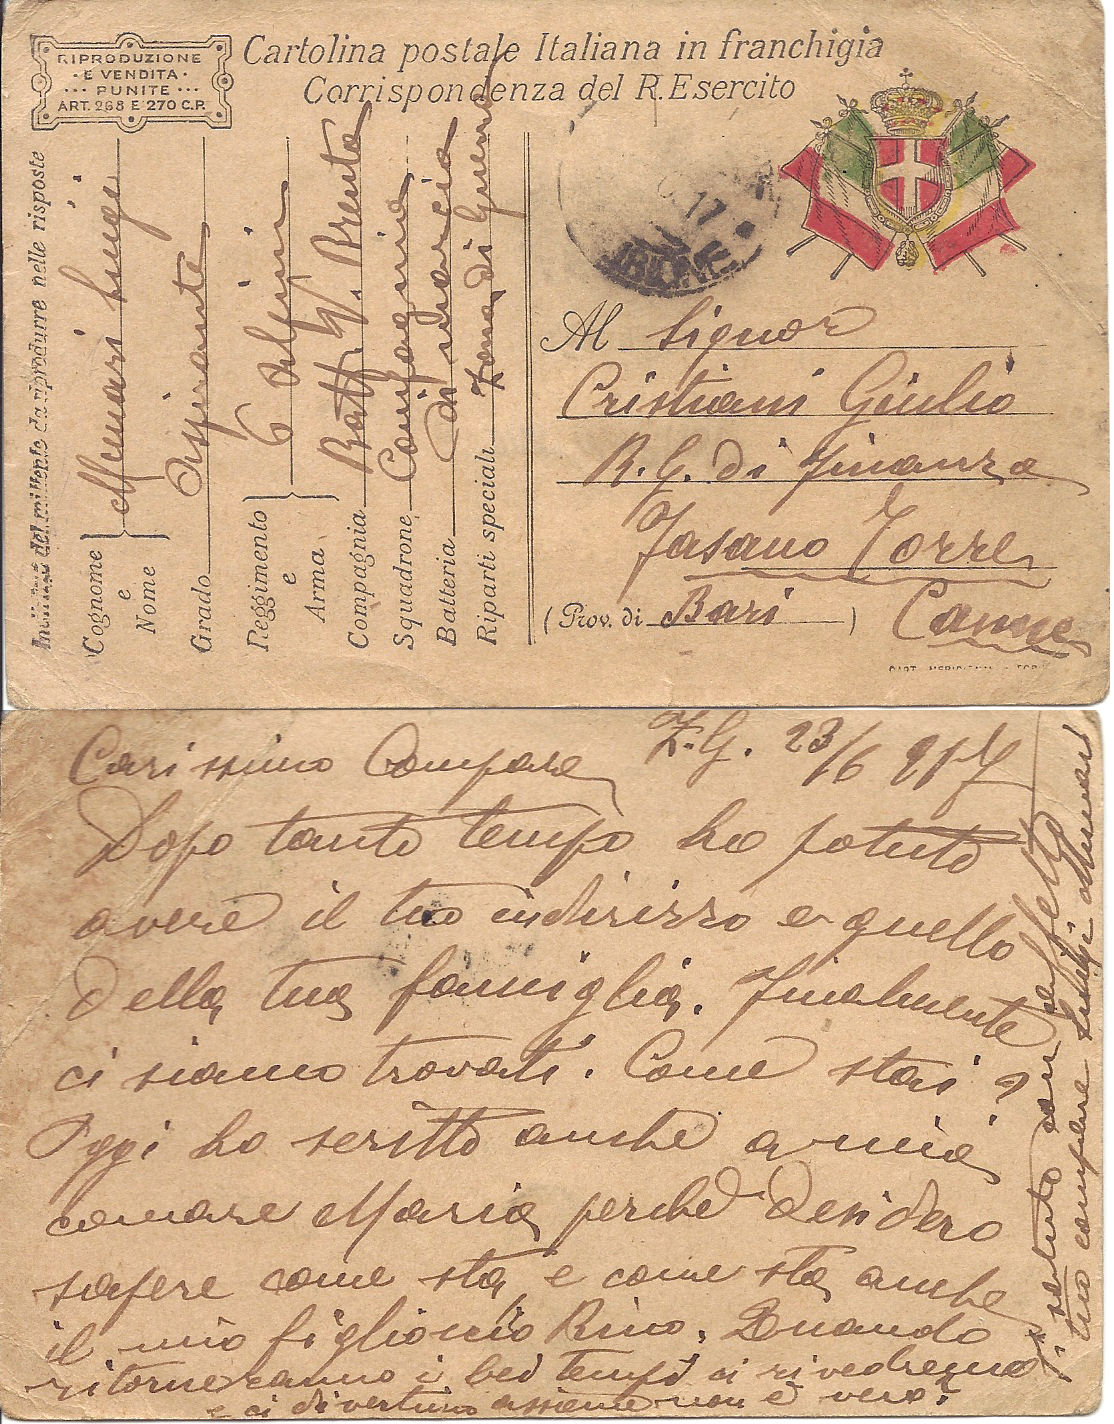 RIPRODUZIONE
E VENDITA
PUNITE
ART. 268 E 270 C.P.
Cartolina postale Italiana in franchigia
Corrispondenza del R. Esercito
del mittente da riprodurre nelle risposte
Cognome e Nome Luigi
Grado Aspirante
Reggimento e Arma 6 Alpini
Compagnia Batt. Brenta
Squadrone Compagnia
Batteria
Riparti speciali Zona di Guerra
17
Al Signor
Cristiani Giulio
R. G. di Finanza
Fasano Torre
(Prov. di Bari) Canne
Z. G. 23/6 917
Carissimo Compare
Dopo tanto tempo ho potuto
avere il tuo indirizzo e quello
della tua famiglia. Finalmente
ci siamo trovati. Come stai?
Oggi ho scritto anche a mia
comare Maria perchè desidero
sapere come sta, e come sta anche
il mio figlioccio Rino. Quando
ritorneranno i bei tempi ci rivedremo
e ci divertiremo assieme non è vero?
Ti saluto con affetto
tuo compare Luigi